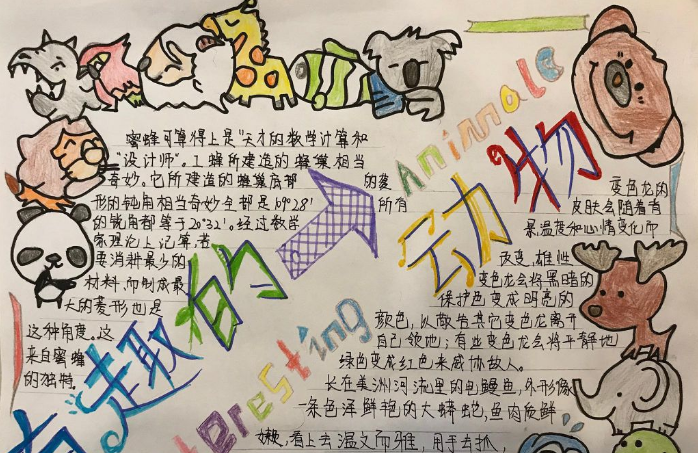 蜜蜂可算得上是"天才的数学计算和
"设计师"。工蜂所建造的蜂巢相当
奇妙。它所建造的蜂巢底部
的菱
形的钝角相当奇妙全部是109°28′
所有
的锐角都等于20°32′。经过数学
家理论上记算,若
要消耗最少的
材料,而制成最
大的菱形也是
这种角度。这
来自蜜蜂
的独特。
有趣的动物
Interesting Animale
变色龙的
皮肤会随着有
景,温度和心情变化而
改变,雄性
变色龙会将黑暗的
保护色变成明亮的
颜色,以敬告其它变色龙离开
自己领地;有些变色龙会将平静地
绿色变成红色来威协敌人。
长在美洲河流里的电鳗鱼,外形像
一条色泽鲜艳的大蟒蛇,鱼肉质鲜
嫩,看上去温文而雅,用手去抓,